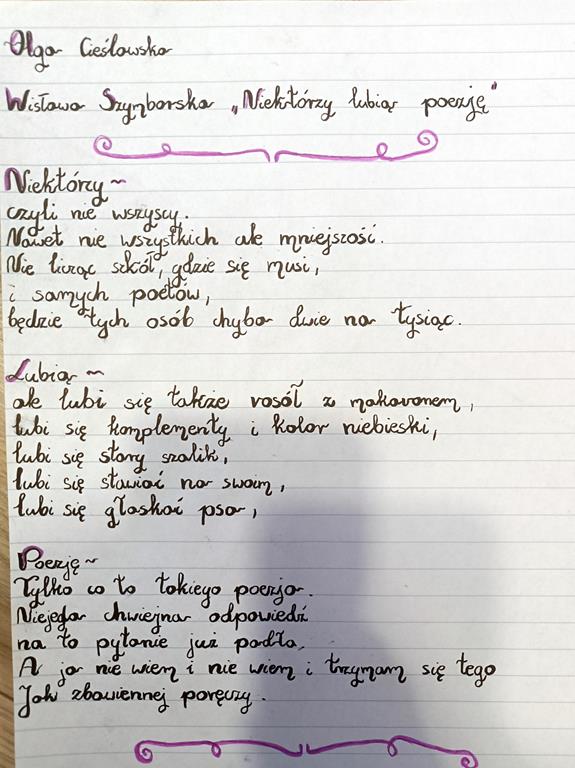 Olga Cieślowska
Wisława Szymborska „Niektórzy lubią poezję"
Niektórzy~
czyli nie wszyscy.
Nawet nie wszystkich ale mniejszość.
Nie licząc szkół, gdzie się musi,
i samych poetów,
będzie tych osób chyba dwie na tysiąc.
Lubią~
ale lubi się także rosół z makaronem,
lubi się komplementy i kolor niebieski,
lubi się stary szalik,
lubi się stawiać na swoim,
lubi się głaskać psa,
Poezję~
Tylko co to takiego poezja.
Niejedna chwiejna odpowiedź
na to pytanie już padła,
A ja nie wiem i nie wiem i trzymam się tego
Jak zbawiennej poręczy.